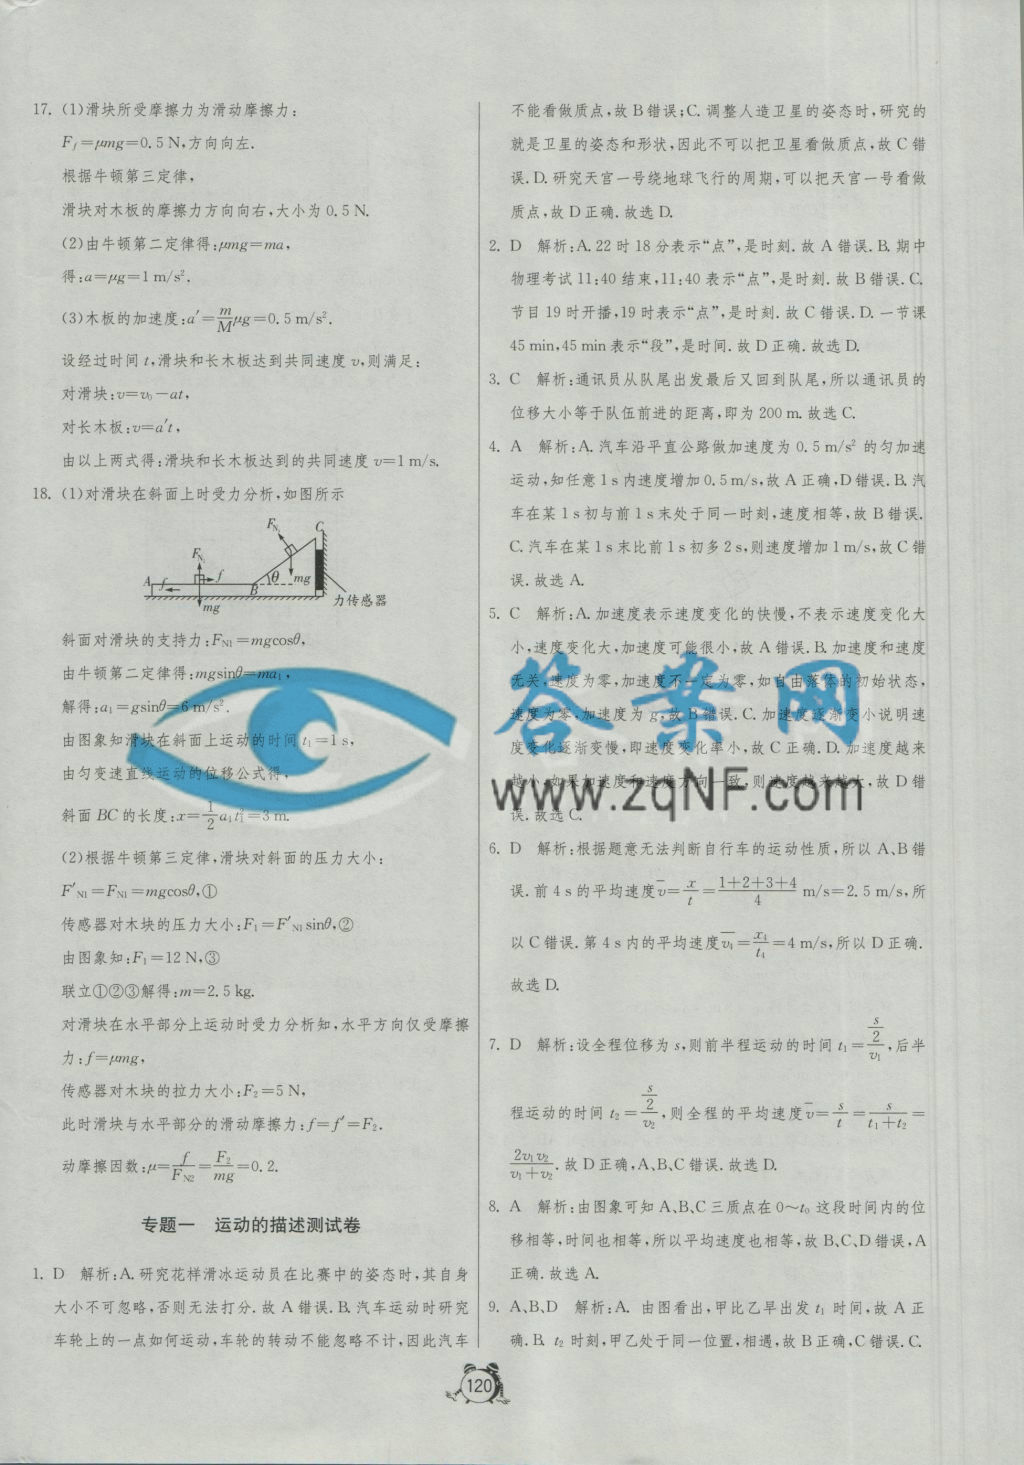 17. (1)滑块所受摩擦力为滑动摩擦力:
Ff=μmg=0.5 N,方向向左.
根据牛顿第三定律,
滑块对木板的摩擦力方向向右,大小为 0.5 N.
(2)由牛顿第二定律得:μmg=ma,
得:a=μg=1 m/s².
(3)木板的加速度:a′=m/M μg=0.5 m/s².
设经过时间 t,滑块和长木板达到共同速度 v,则满足:
对滑块:v=v₀-at,
对长木板:v=a′t,
由以上两式得:滑块和长木板达到的共同速度 v=1 m/s.
18. (1)对滑块在斜面上时受力分析,如图所示
FN1 C
FN2 f θ mg
A f B
mg 力传感器
斜面对滑块的支持力:FN1=mgcosθ,
由牛顿第二定律得:mgsinθ=ma₁,
解得:a₁=gsinθ=6 m/s².
由图象知滑块在斜面上运动的时间 t₁=1 s,
由匀变速直线运动的位移公式得,
斜面 BC 的长度:x=1/2 a₁t₁²=3 m.
(2)根据牛顿第三定律,滑块对斜面的压力大小:
F′N1=FN1=mgcosθ,①
传感器对木块的压力大小:F₁=F′N1sinθ,②
由图象知:F₁=12 N,③
联立①②③解得:m=2.5 kg.
对滑块在水平部分上运动时受力分析知,水平方向仅受摩擦
力:f=μmg,
传感器对木块的拉力大小:F₂=5 N,
此时滑块与水平部分的滑动摩擦力:f=f′=F₂.
动摩擦因数:μ=f/FN2=F₂/mg=0.2.
专题一 运动的描述测试卷
1. D 解析:A.研究花样滑冰运动员在比赛中的姿态时,其自身
大小不可忽略,否则无法打分.故 A 错误.B.汽车运动时研究
车轮上的一点如何运动,车轮的转动不能忽略不计,因此汽车
不能看做质点,故 B 错误;C.调整人造卫星的姿态时,研究的
就是卫星的姿态和形状,因此不可以把卫星看做质点,故 C 错
误.D.研究天宫一号绕地球飞行的周期,可以把天宫一号看做
质点,故 D 正确.故选 D.
2. D 解析:A.22 时 18 分表示“点”,是时刻.故 A 错误.B.期中
物理考试 11:40 结束,11:40 表示“点”,是时刻.故 B 错误.C.
节目 19 时开播,19 时表示“点”,是时刻.故 C 错误.D.一节课
45 min,45 min 表示“段”,是时间.故 D 正确.故选 D.
3. C 解析:通讯员从队尾出发最后又回到队尾,所以通讯员的
位移大小等于队伍前进的距离,即为 200 m.故选 C.
4. A 解析:A.汽车沿平直公路做加速度为 0.5 m/s² 的匀加速
运动,知任意 1 s 内速度增加 0.5 m/s,故 A 正确,D 错误.B.汽
车在某 1 s 初与前 1 s 末处于同一时刻,速度相等,故 B 错误.
C.汽车在某 1 s 末比前 1 s 初多 2 s,则速度增加 1 m/s,故 C 错
误.故选 A.
5. C 解析:A.加速度表示速度变化的快慢,不表示速度变化大
小,速度变化大,加速度可能很小,故 A 错误.B.加速度和速度
无关,速度为零,加速度不一定为零,如自由落体的初始状态,
速度为零,加速度为 g,故 B 错误.C.加速度逐渐变小说明速
度变化逐渐变慢,即速度变化率小,故 C 正确.D.加速度越来
越小,如果加速度和速度方向一致,则速度越来越大,故 D 错
误.故选 C.
6. D 解析:根据题意无法判断自行车的运动性质,所以 A、B 错
误.前 4 s 的平均速度v̄=x/t=(1+2+3+4)/4 m/s=2.5 m/s,所
以 C 错误.第 4 s 内的平均速度v̄₄=x₄/t₄=4 m/s,所以 D 正确.
故选 D.
7. D 解析:设全程位移为 s,则前半程运动的时间 t₁=(s/2)/v₁,后半
程运动的时间 t₂=(s/2)/v₂,则全程的平均速度v̄=s/t=s/(t₁+t₂)=
2v₁v₂/(v₁+v₂).故 D 正确,A、B、C 错误.故选 D.
8. A 解析:由图象可知 A、B、C 三质点在 0～t₀ 这段时间内的位
移相等,时间也相等,所以平均速度也相等,故 B、C、D 错误,A
正确.故选 A.
9. A、B、D 解析:A. 由图看出,甲比乙早出发 t₁ 时间,故 A 正
确.B. t₂ 时刻,甲乙处于同一位置,相遇,故 B 正确,C 错误.C.
120
答案网
www.zqNF.com